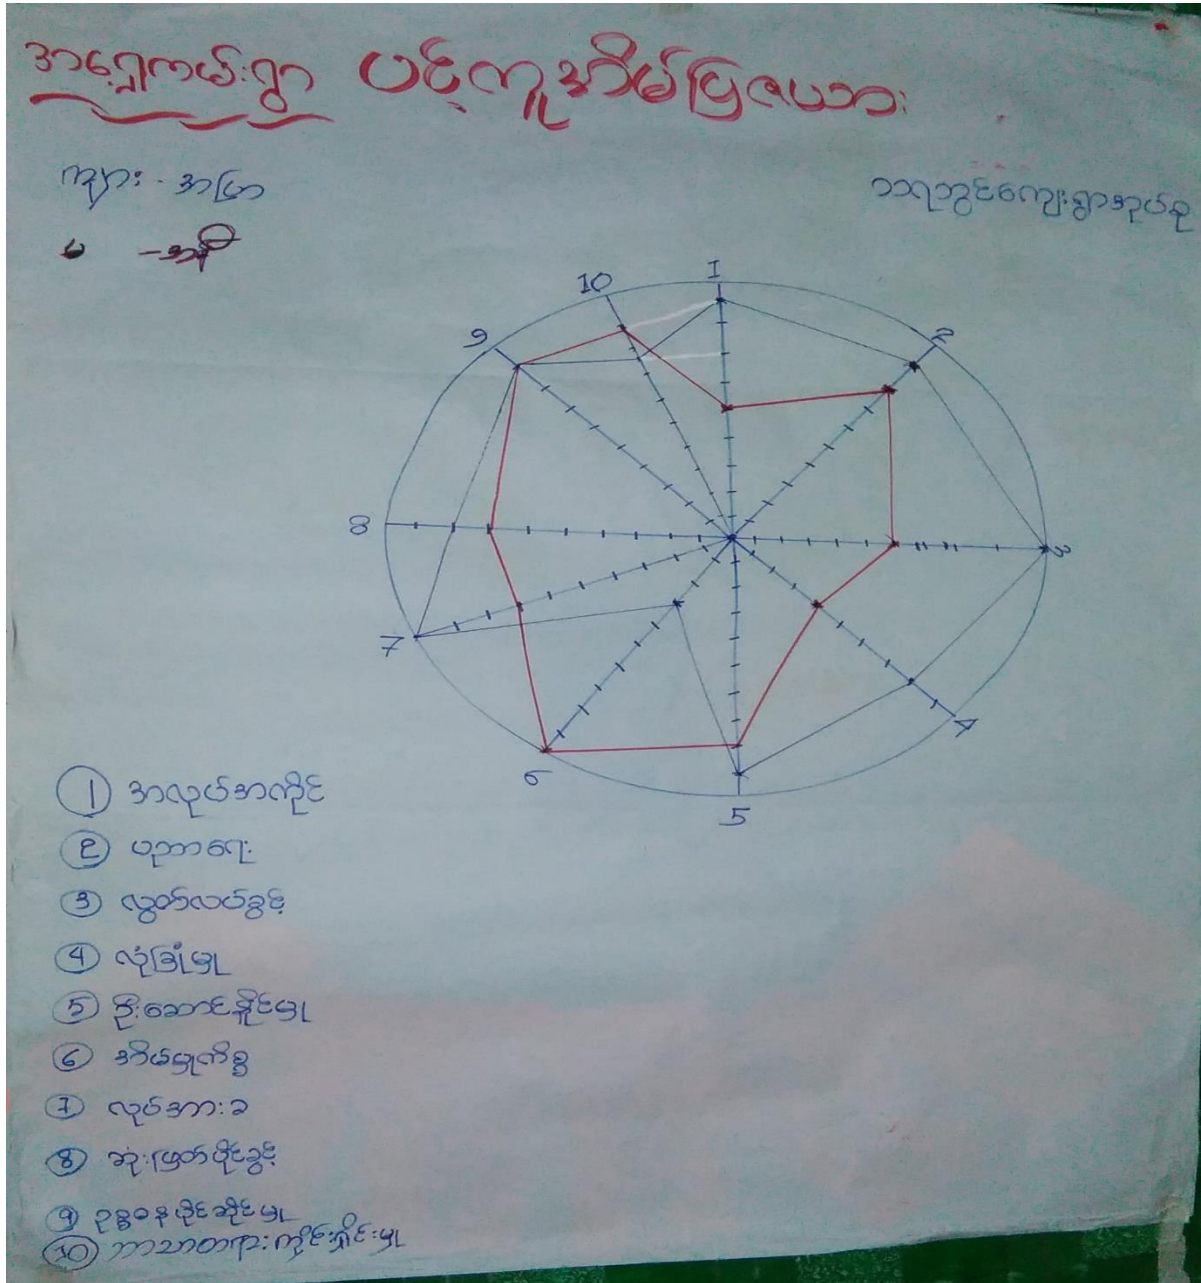 အရှေ့ကမ်းရွာ ပင့်ကူအိမ်ပြဇယား
ကျား - အပြာ
မ - အနီ
သရက္ဘွင်ကျေးရွာအုပ်စု
10
1
2
3
4
5
6
7
8
9
1 အလုပ်အကိုင်
2 ပညာရေး
3 လွတ်လပ်ခွင့်
4 လုံခြုံမှု
5 ဦးဆောင်နိုင်မှု
6 အိမ်မှုကိစ္စ
7 လုပ်အားခ
8 ဆုံးဖြတ်ပိုင်ခွင့်
9 ဥစ္စဓနပိုင်ဆိုင်မှု
10 ဘာသာတရားကိုင်းရှိုင်းမှု